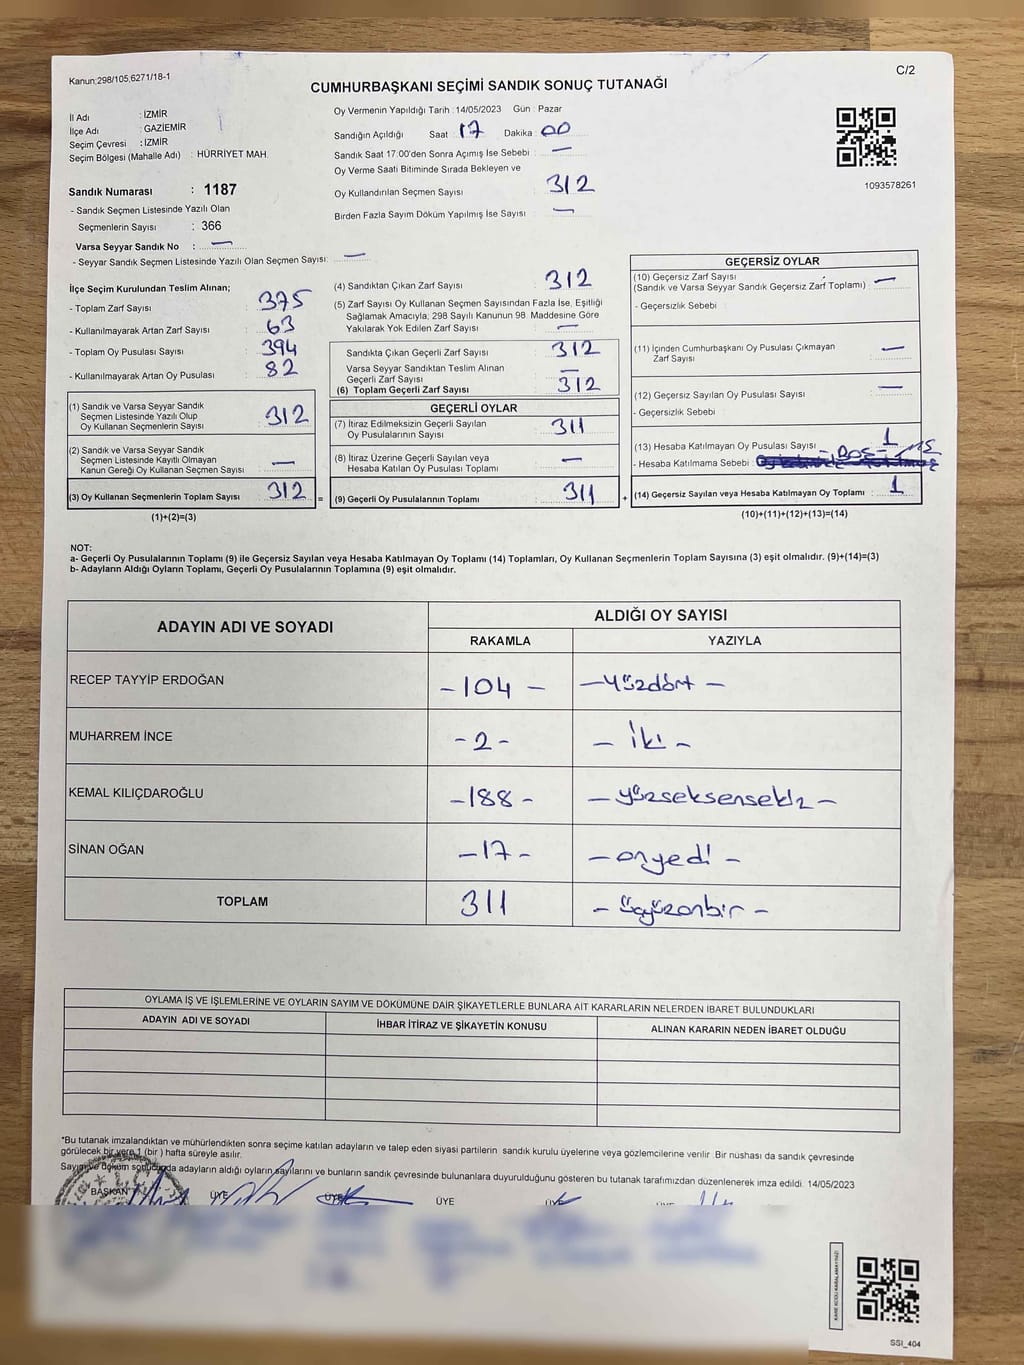 Kanun:298/105,6271/18-1
C/2
CUMHURBAŞKANI SEÇİMİ SANDIK SONUÇ TUTANAĞI
İl Adı : İZMİR
İlçe Adı : GAZİEMİR
Seçim Çevresi : İZMİR
Seçim Bölgesi (Mahalle Adı) : HÜRRİYET MAH.
Sandık Numarası : 1187
- Sandık Seçmen Listesinde Yazılı Olan
Seçmenlerin Sayısı : 366
Varsa Seyyar Sandık No : —
- Seyyar Sandık Seçmen Listesinde Yazılı Olan Seçmen Sayısı: —
Oy Vermenin Yapıldığı Tarih : 14/05/2023 Gün : Pazar
Sandığın Açıldığı Saat 17 Dakika : 00
Sandık Saat 17.00'den Sonra Açımış İse Sebebi : —
Oy Verme Saati Bitiminde Sırada Bekleyen ve
Oy Kullandırılan Seçmen Sayısı : 312
Birden Fazla Sayım Döküm Yapılmış İse Sayısı : —
1093578261
İlçe Seçim Kurulundan Teslim Alınan;
- Toplam Zarf Sayısı : 375
- Kullanılmayarak Artan Zarf Sayısı : 63
- Toplam Oy Pusulası Sayısı : 394
- Kullanılmayarak Artan Oy Pusulası : 82
(1) Sandık ve Varsa Seyyar Sandık
Seçmen Listesinde Yazılı Olup
Oy Kullanan Seçmenlerin Sayısı : 312
(2) Sandık ve Varsa Seyyar Sandık
Seçmen Listesinde Kayıtlı Olmayan
Kanun Gereği Oy Kullanan Seçmen Sayısı : —
(3) Oy Kullanan Seçmenlerin Toplam Sayısı : 312 =
(1)+(2)=(3)
(4) Sandıktan Çıkan Zarf Sayısı : 312
(5) Zarf Sayısı Oy Kullanan Seçmen Sayısından Fazla İse, Eşitliği
Sağlamak Amacıyla; 298 Sayılı Kanunun 98. Maddesine Göre
Yakılarak Yok Edilen Zarf Sayısı : —
Sandıkta Çıkan Geçerli Zarf Sayısı : 312
Varsa Seyyar Sandıktan Teslim Alınan
Geçerli Zarf Sayısı : —
(6) Toplam Geçerli Zarf Sayısı : 312
GEÇERLİ OYLAR
(7) İtiraz Edilmeksizin Geçerli Sayılan
Oy Pusulalarının Sayısı : 311
(8) İtiraz Üzerine Geçerli Sayılan veya
Hesaba Katılan Oy Pusulası Toplamı : —
(9) Geçerli Oy Pusulalarının Toplamı : 311 +
GEÇERSİZ OYLAR
(10) Geçersiz Zarf Sayısı
(Sandık ve Varsa Seyyar Sandık Geçersiz Zarf Toplamı) : —
- Geçersizlik Sebebi :
(11) İçinden Cumhurbaşkanı Oy Pusulası Çıkmayan
Zarf Sayısı : —
(12) Geçersiz Sayılan Oy Pusulası Sayısı : —
- Geçersizlik Sebebi :
(13) Hesaba Katılmayan Oy Pusulası Sayısı : 1
- Hesaba Katılmama Sebebi : - Boş -
(14) Geçersiz Sayılan veya Hesaba Katılmayan Oy Toplamı : 1
(10)+(11)+(12)+(13)=(14)
NOT:
a- Geçerli Oy Pusulalarının Toplamı (9) ile Geçersiz Sayılan veya Hesaba Katılmayan Oy Toplamı (14) Toplamları, Oy Kullanan Seçmenlerin Toplam Sayısına (3) eşit olmalıdır. (9)+(14)=(3)
b- Adayların Aldığı Oyların Toplamı, Geçerli Oy Pusulalarının Toplamına (9) eşit olmalıdır.
ADAYIN ADI VE SOYADI
ALDIĞI OY SAYISI
RAKAMLA YAZIYLA
RECEP TAYYİP ERDOĞAN - 104 - - Yüzdört -
MUHARREM İNCE - 2 - - İki -
KEMAL KILIÇDAROĞLU - 188 - - yüzseksensekiz -
SİNAN OĞAN - 17 - - onyedi -
TOPLAM 311 - üçyüzonbir -
OYLAMA İŞ VE İŞLEMLERİNE VE OYLARIN SAYIM VE DÖKÜMÜNE DAİR ŞİKAYETLERLE BUNLARA AİT KARARLARIN NELERDEN İBARET BULUNDUKLARI
ADAYIN ADI VE SOYADI İHBAR İTİRAZ VE ŞİKAYETİN KONUSU ALINAN KARARIN NEDEN İBARET OLDUĞU
*Bu tutanak imzalandıktan ve mühürlendikten sonra seçime katılan adayların ve talep eden siyasi partilerin sandık kurulu üyelerine veya gözlemcilerine verilir. Bir nüshası da sandık çevresinde
görülecek bir yere 1 (bir ) hafta süreyle asılır.
Sayım ve döküm sonucunda adayların aldığı oyların sayılarını ve bunların sandık çevresinde bulunanlara duyurulduğunu gösteren bu tutanak tarafımızdan düzenlenerek imza edildi. 14/05/2023
BAŞKAN ÜYE ÜYE ÜYE ÜYE
SSI_404